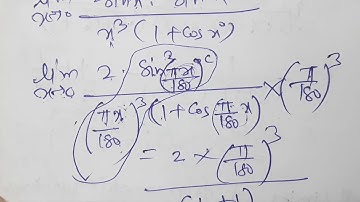 x³ (1+cosx°)
lim x→0 2 · sin³ (πx/180)ᶜ / (πx/180)³ (1+cos πx/180) × (π/180)³
= 2 × (π/180)³